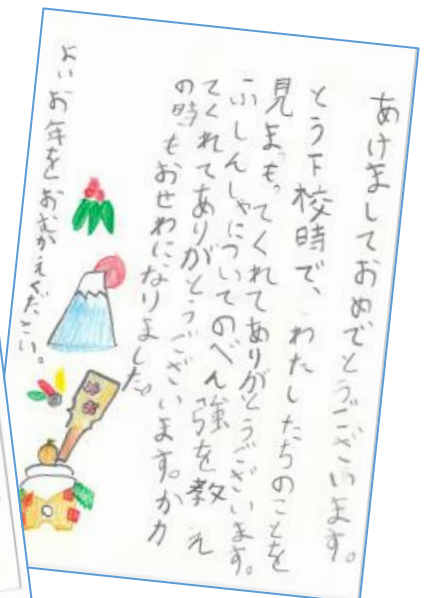 あけましておめでとうございます。
とう下校時で、わたしたちのことを
見まもってくれてありがとうございます。
ふしんしゃについてのべん強を教え
てくれてありがとうございます。かカ
の時もおせわになりました。
よいお年をおむかえください。